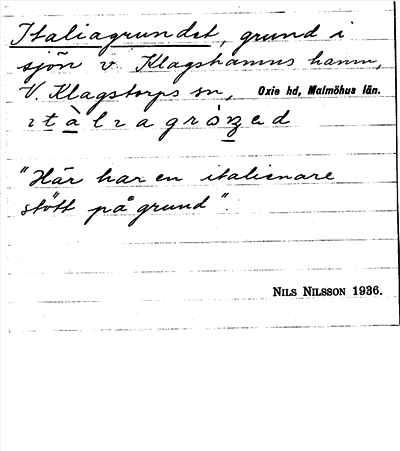 Italiagrundet, grund i
sjön v. Klagshamns hamn,
V. Klagstorps sn, Oxie hd, Malmöhus län.
"Här har en italienare
stött på grund".
NILS NILSSON 1936.